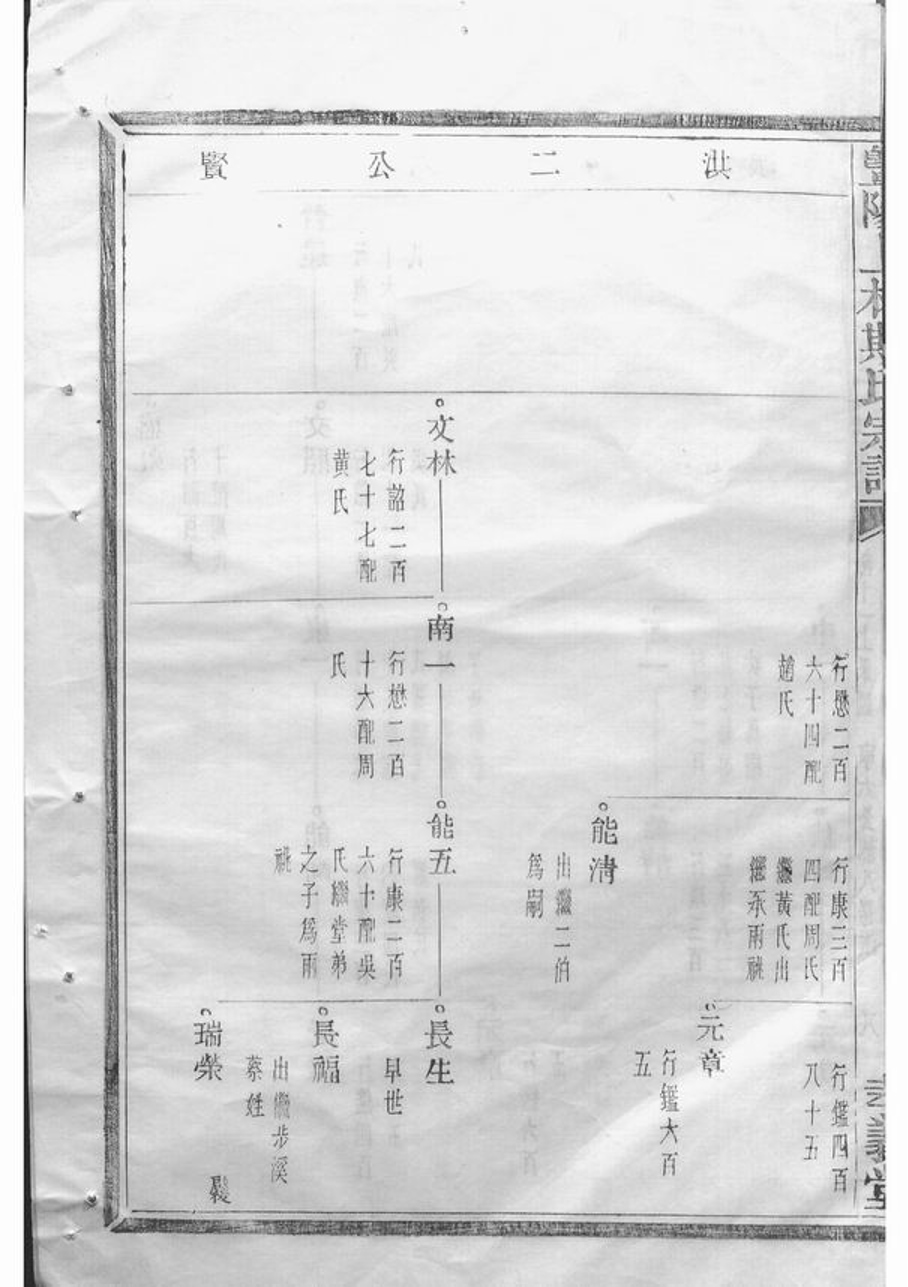 洪二公賢
文林
行詔二百
七十七配
黄氏
行懋二百
六十四配
趙氏
南一
行懋二百
十六配周
氏
行康三百
四配周氏
繼黃氏出
繼永雨祧
能清
出繼二伯
爲嗣
能五
行康二百
六十配吳
氏繼堂弟
之子爲雨
祧
行鑑四百
八十五
元章
行鑑六百
五
長生
早世
長福
出繼步溪
蔡姓
瑞榮
斯氏宗譜
義堂